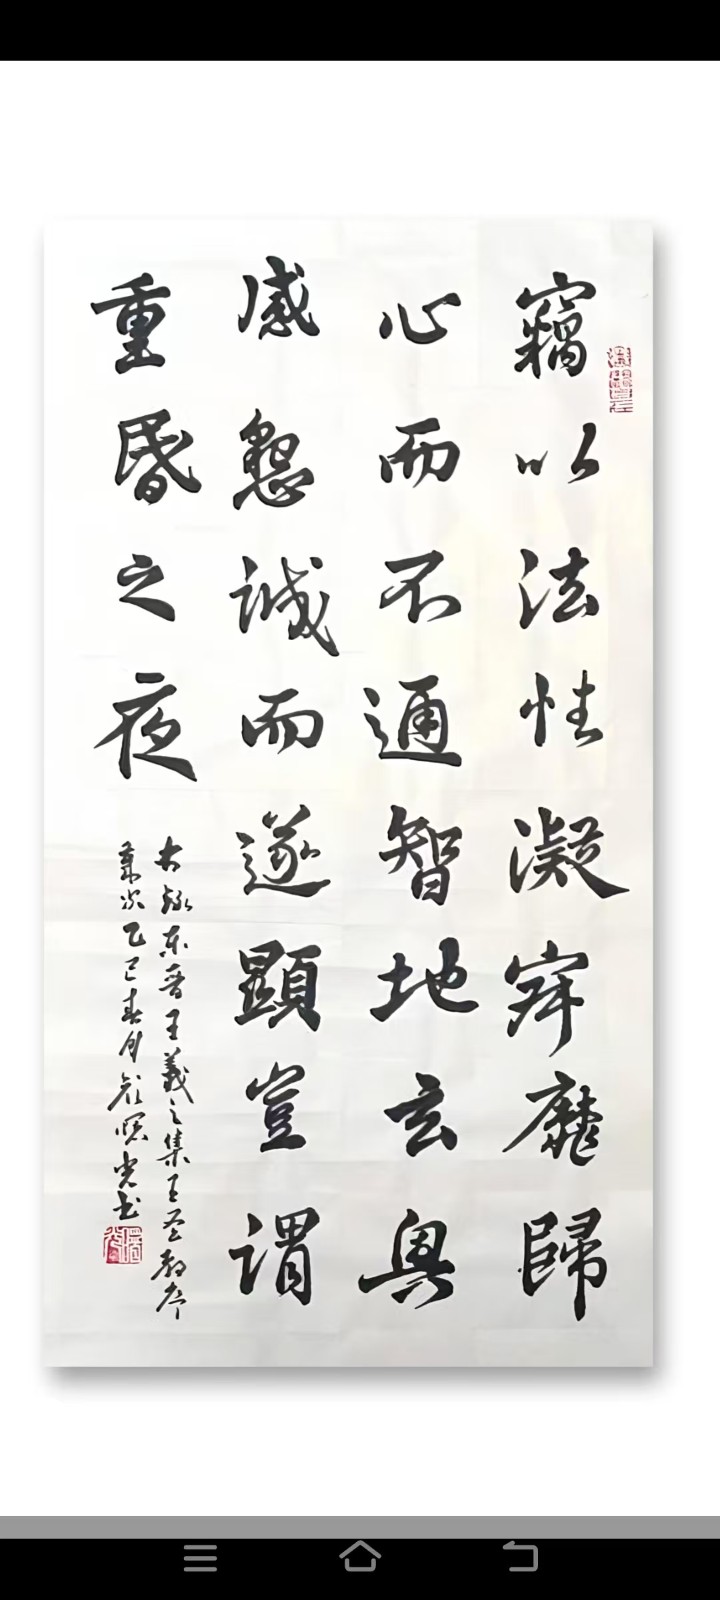 竊以法性凝寂靡歸
心而不通智地玄奧
感懇誠而遂顯豈謂
重昏之夜
右録东晋王羲之集王圣教序
歲次乙巳春月 光书